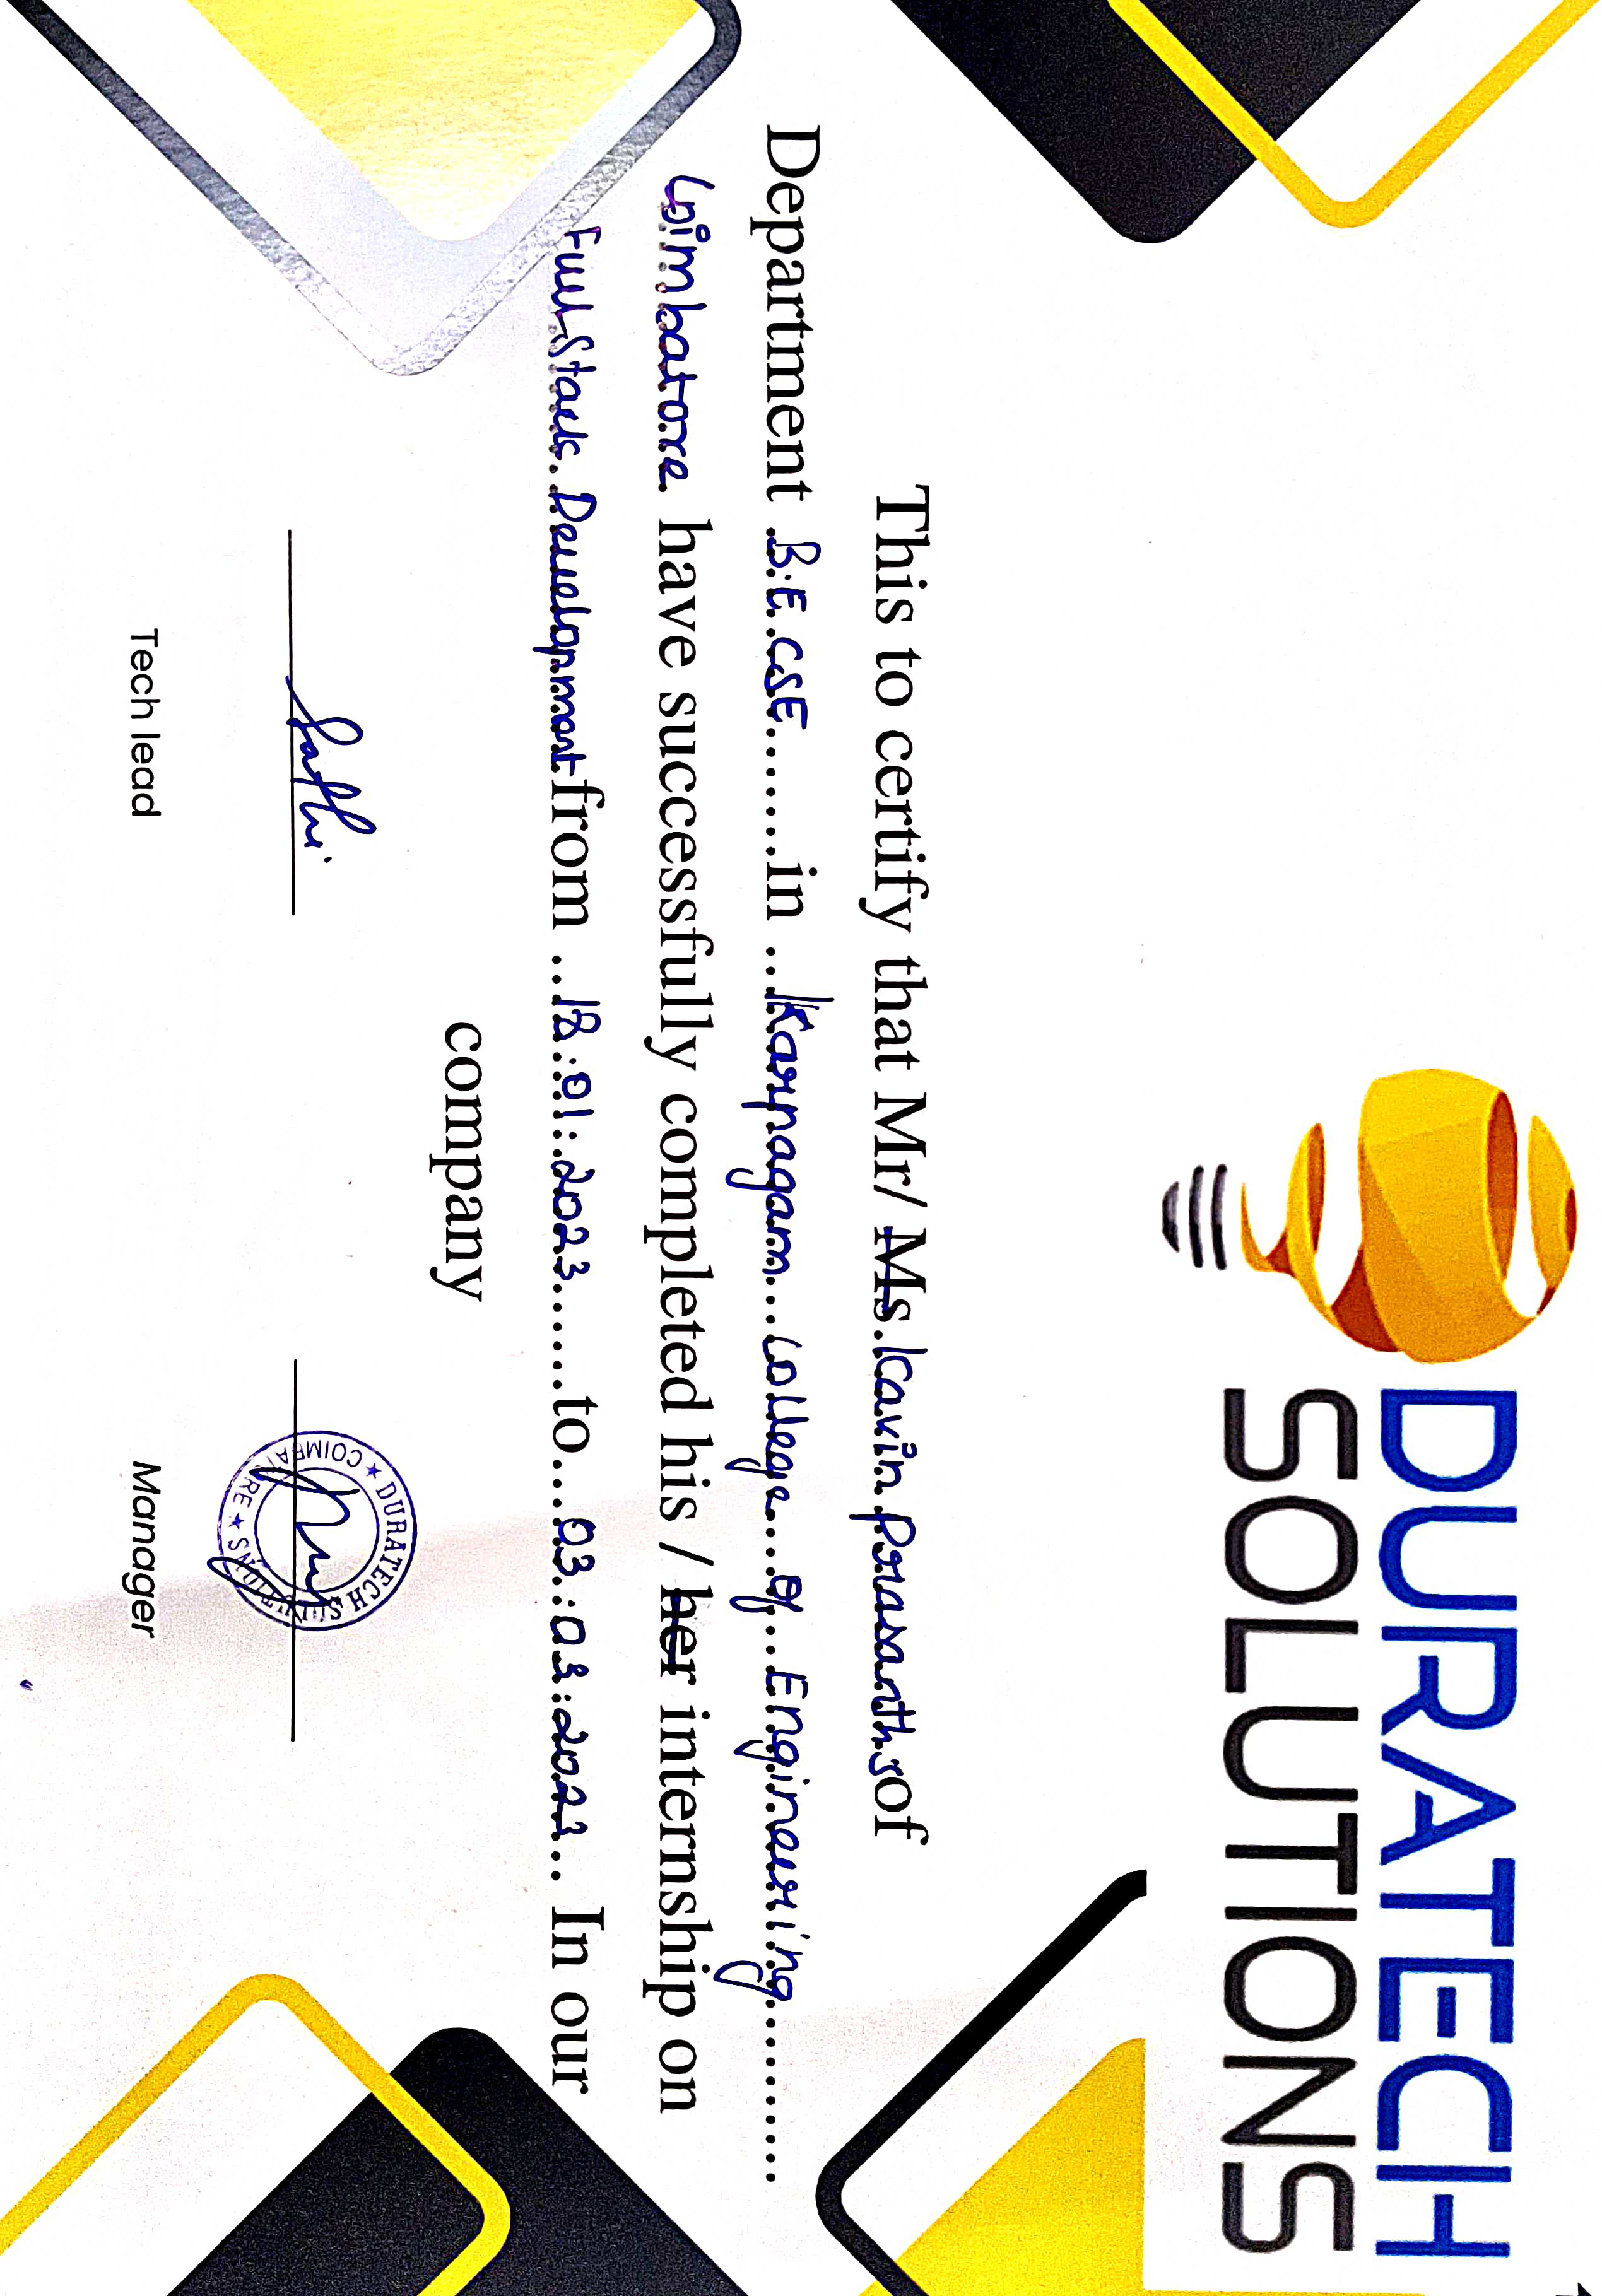 DURATECH
SOLUTIONS
This to certify that Mr/ Ms. Kavin Prasanth.s of
Department B.E.CSE.......in ...Karpagam...College...of...Engineering...........
Coimbatore. have successfully completed his / her internship on
Full Stack Development from ..18.01.2023.......to...03.03.2023... In our
company
★ DURATECH SOLUTIONS ★ COIMBATORE
Sathi.
Tech lead
Manager